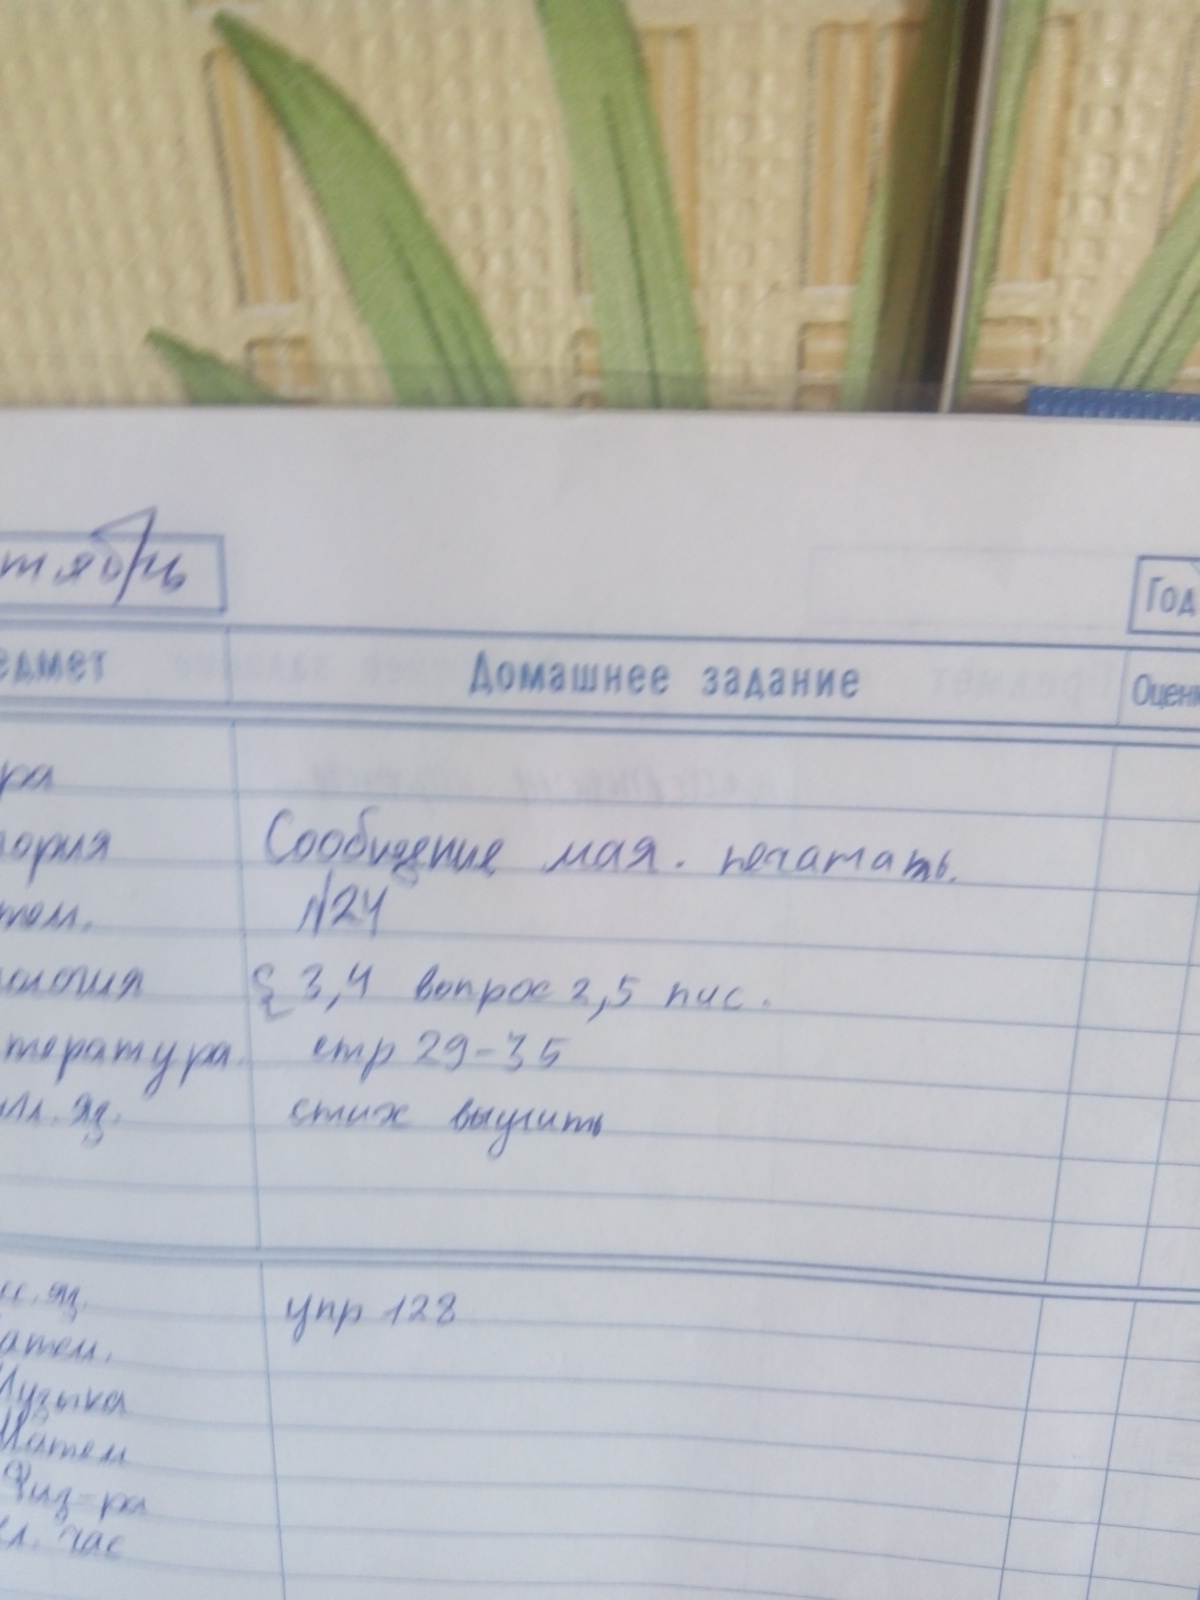 тябрь
Год
едмет Домашнее задание Оценк
ра
тория Сообщение мая. печатать.
тем. №24
иология § 3,4 вопрос 2,5 пис.
тература. стр 29-35
гл. яз. стих выучить
сс. яз. упр 128
атем.
Музыка
Матем
Физ-ра
кл. час